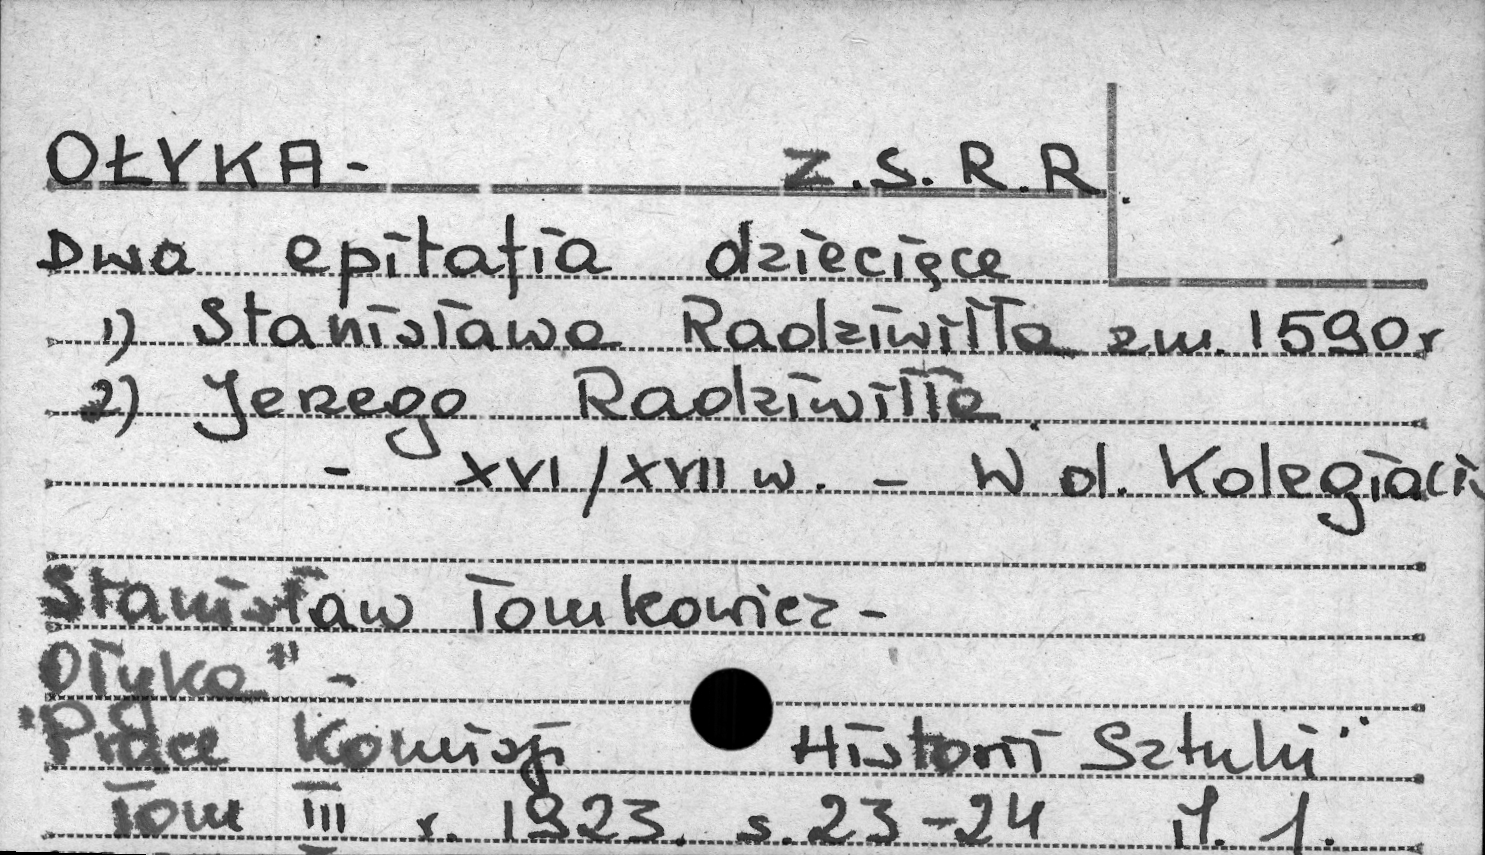 OŁYKA - Z.S.R.R.
Dwa epitafia dziecięce
1) Stanisława Radziwiłła zm. 1590 r
2) Jerzego Radziwiłła.
- XVI/XVII w. - W d. Kolegiaci
Stanisław Tomkowicz -
Ołyka" -
"Prace Komisji Historii Sztuki"
Tom III r. 1923. s. 23-24 il. 1.